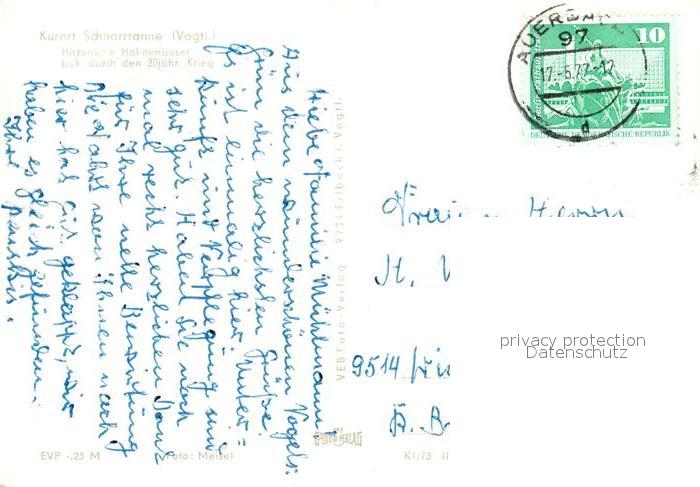 Kurort Schnarrtanne (Vogtl.)
Historische Hahnenäuser
bek. durch den 30jähr. Krieg
Liebe Familie Mühlmann
Aus dem wunderschönen Vogtl.
Ihnen die herzlichsten Grüße.
Es ist einmalig hier. Unter=
kunft und Verpflegung sind
sehr gut. Haben Sie noch
mal recht herzlichen Dank
für Ihre nette Bewirtung
Die Fahrt von Ihnen nach
hier hat gut geklappt, wir
haben es gleich gefunden.
Ihre
VEB Foto-Verlag 9734 Erlbach i. Vogtl.
EVP -,25 M
Foto: Meisel
K1/73 II
AUERBACH
97
17.-6.77.-12
d
10
DEUTSCHE DEMOKRATISCHE REPUBLIK
9514
privacy protection
Datenschutz